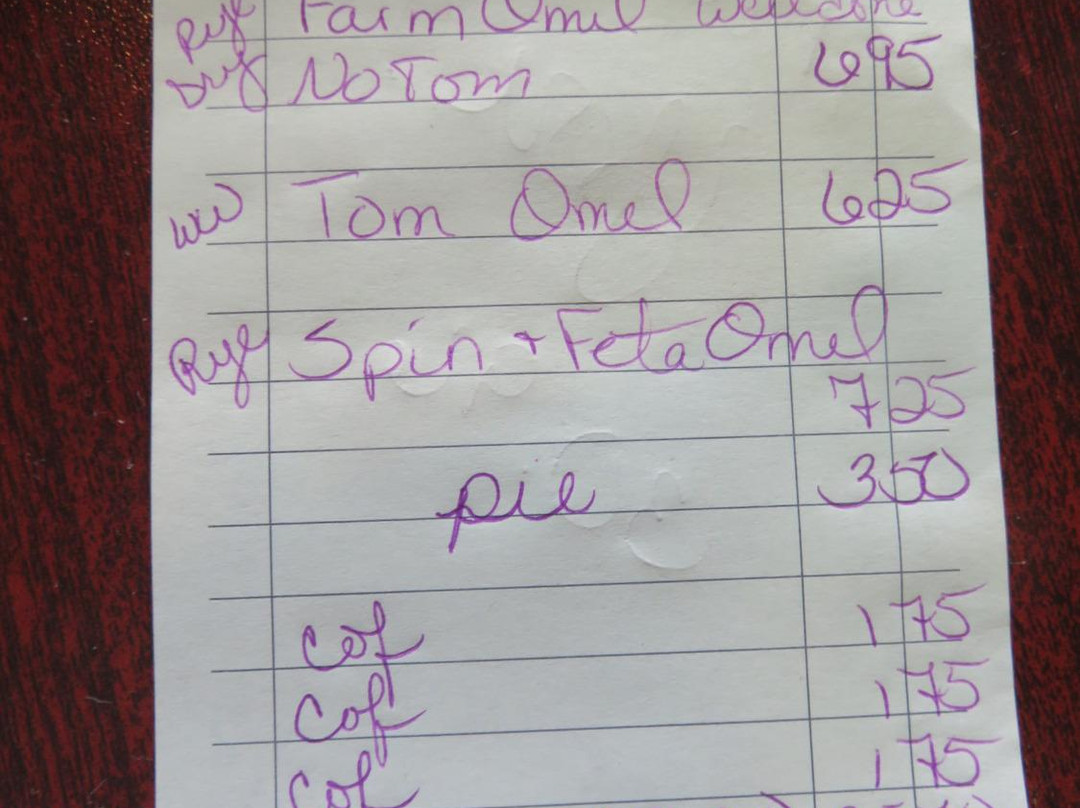 Rye Farm Omel Welldone
Dry No Tom 6 95
WW Tom Omel 6 25
Rye Spin + Feta Omel
7 25
pie 3 50
Cof 1 75
Cof 1 75
Cof 1 75